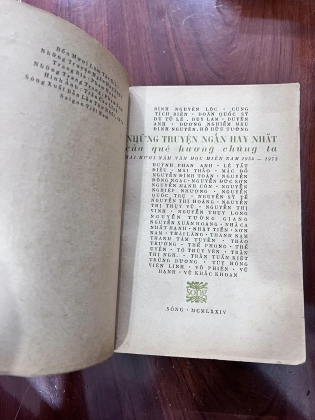 BÌNH NGUYÊN LỘC · CUNG
TÍCH BIỀN · DOÃN QUỐC SỸ
DU TỬ LÊ · DUY LAM · DUYÊN
ANH · DƯƠNG NGHIỄM MẬU
ĐINH NGUYÊN, HỒ HỮU TƯỜNG
NHỮNG TRUYỆN NGẮN HAY NHẤT
của quê hương chúng ta
HAI MƯƠI NĂM VĂN HỌC MIỀN NAM 1954 – 1973
HUỲNH PHAN ANH · LÊ TẤT
ĐIỀU · MAI THẢO · MẶC ĐỖ
NGUYỄN ĐÌNH TOÀN · NGUYỄN
ĐÔNG NGẠC · NGUYỄN ĐỨC SƠN
NGUYỄN MẠNH CÔN · NGUYỄN
NGHIỆP NHƯỢNG · NGUYỄN
QUỐC TRỤ · NGUYỄN SỸ TẾ
NGUYỄN THỊ HOÀNG · NGUYỄN
THỊ THỤY VŨ · NGUYỄN THỊ
VINH · NGUYỄN THỤY LONG
NGUYỄN TƯỜNG GIANG
NGUYỄN XUÂN HOÀNG · NHÃ CA
NHẤT HẠNH · NHẬT TIẾN · SƠN
NAM · THÁI LÃNG · THANH NAM
THANH TÂM TUYỀN · THẢO
TRƯỜNG · THẾ PHONG · THẾ
UYÊN · TÔ THÙY YÊN · TRẦN
THỊ NGH. · TRẦN TUẤN KIỆT
TRÙNG DƯƠNG · TÚY HỒNG
VIÊN LINH · VÕ PHIẾN · VŨ
HẠNH · VŨ KHẮC KHOAN
sóng
SÓNG · MCMLXXIV